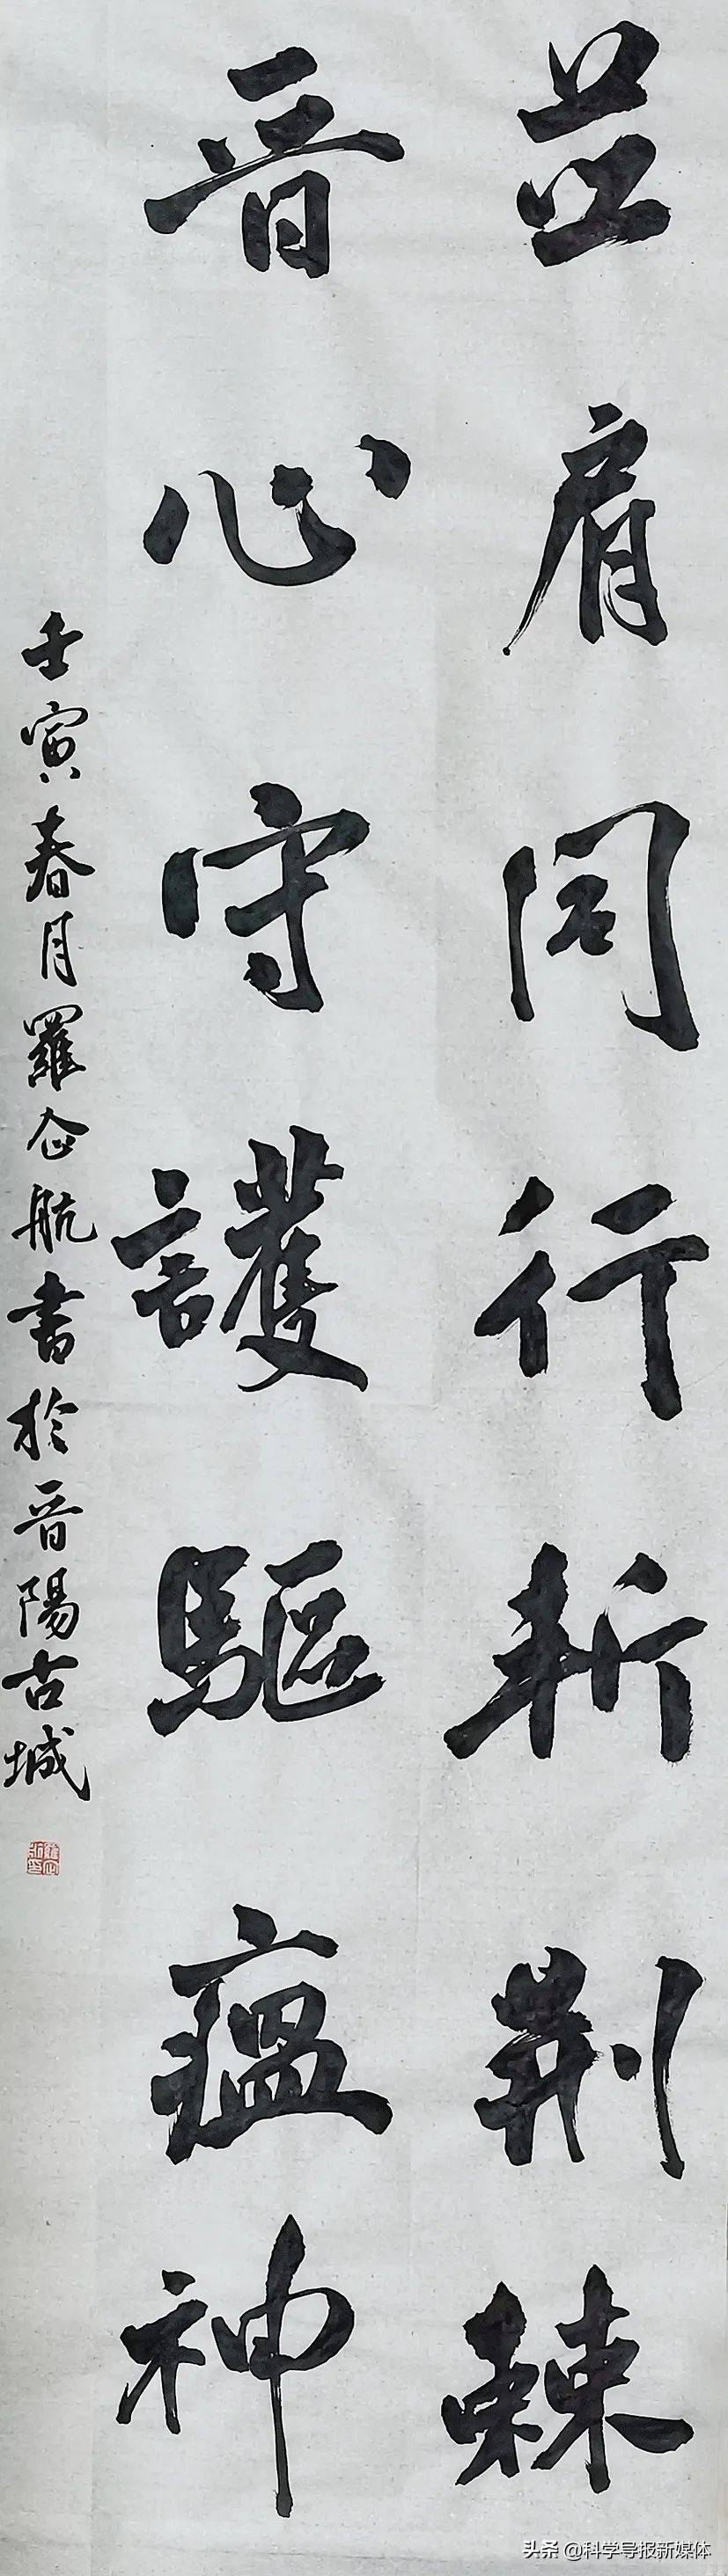 並肩同行斬荆棘
晋心守護驅瘟神
壬寅春月羅企航書於晋陽古城
头条 @科学导报新媒体